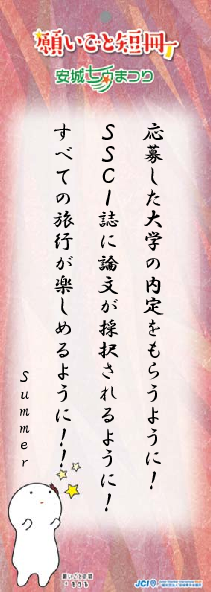 願いごと短冊
安城七夕まつり
応募した大学の内定をもらうように！
SSCI誌に論文が採択されるように！
すべての旅行が楽しめるように！！
Summer
願いごと短冊
JCI